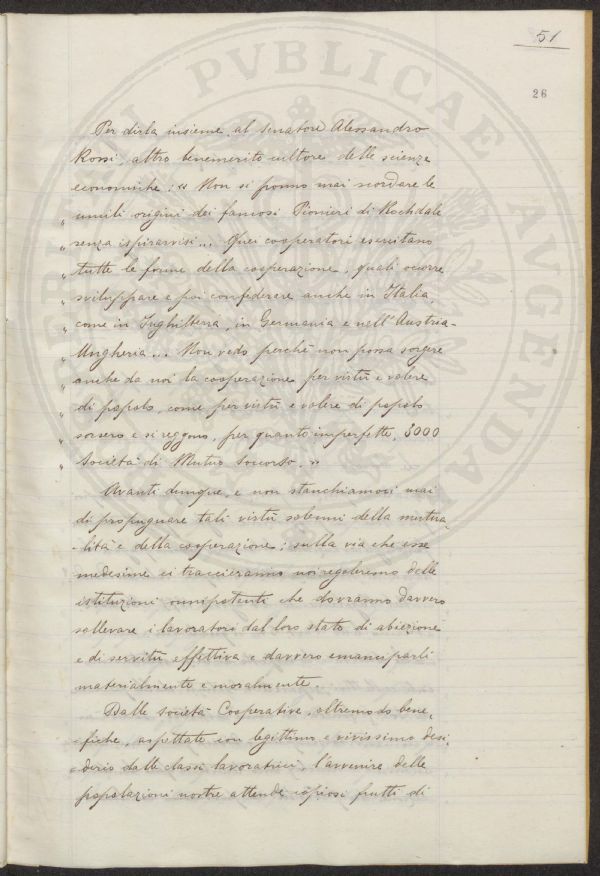 51
26
Per dirla insieme al Senatore Alessandro
Rossi, altro benemerito cultore delle scienze
economiche: « Non si ponno mai scordare le
„ umili origini dei famosi Pionieri di Rochdale
„ senza ispirarvisi... Quei cooperatori esercitano
„ tutte le forme della cooperazione, quali ocorre
„ sviluppare e poi confederare anche in Italia,
„ come in Inghilterra, in Germania e nell'Austria-
„ Ungheria... Non vedo perchè non possa sorgere
„ anche da noi la cooperazione per virtù e valere
„ di popolo, come per virtù e valere di popolo
„ sorsero e si reggono, per quanto imperfette, 5000
„ Società di Mutuo Soccorso. »
Avanti dunque, e non stanchiamoci mai
di propugnare tali virtù solenni della mutua-
-lità e della cooperazione; sulla via che esse
medesime ci traccieranno noi regoleremo delle
istituzioni omnipotenti che dovranno davvero
sollevare i lavoratori dal loro stato di abiezione
e di servitù effettiva e davvero emanciparli
materialmente e moralmente.
Dalle Società Cooperative, oltremodo bene-
-fiche, aspettate con legittimo e vivissimo desi-
-derio dalle classi lavoratrici, l'avvenire delle
popolazioni nostre attende copiosi frutti di
PVBLICAE
AVGENDAE